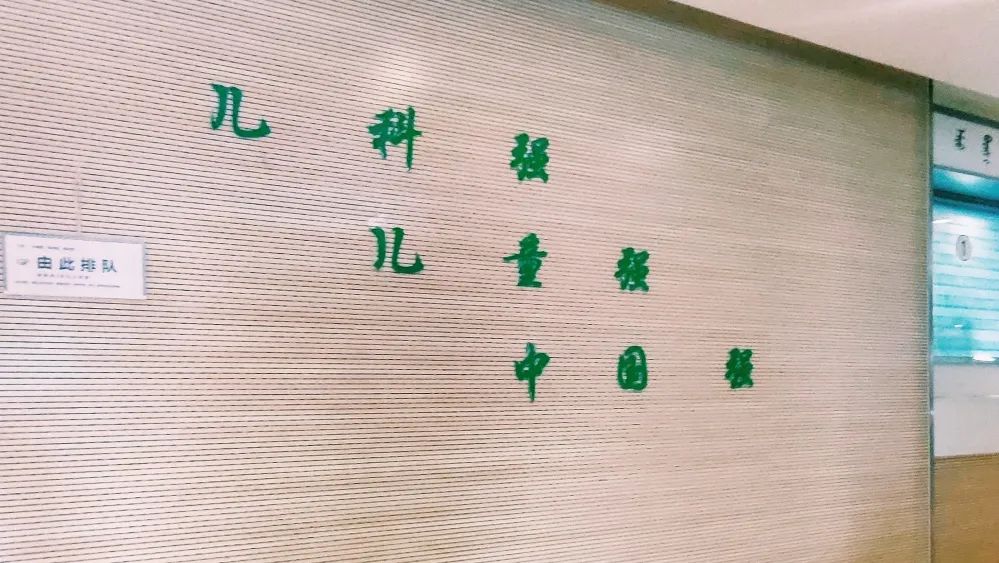 儿科强
儿童强
中国强
由此排队
1